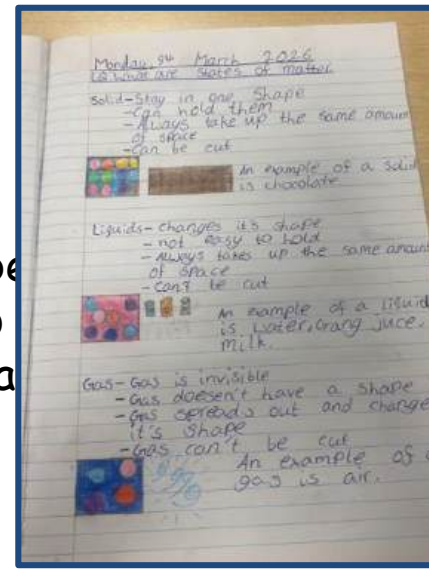 Monday, 9th March 2026
LQ What are states of matter.
Solid-Stay in one shape
-Can hold them
-Always take up the same amount
of space
-Can be cut
An example of a solid
is chocolate
Liquids- changes it's shape
- not easy to hold
- Always takes up the same amount
of space
- Can't be cut
An example of a liquid
is water, orang juce,
milk.
Gas- Gas is invisible
- Gas doesen't have a shape
- Gas spreads out and change
it's shape
- Gas can't be cut
An example of a
gas is air.